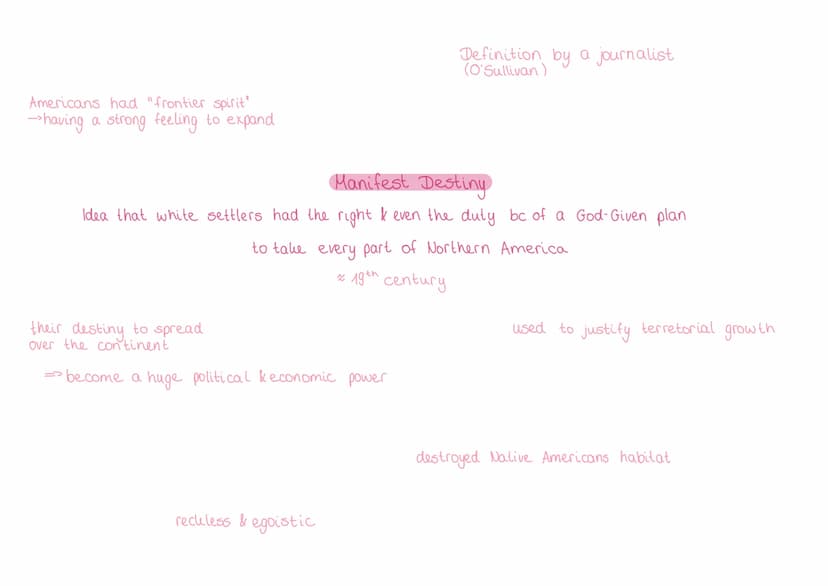 Definition by a journalist
(O'Sullivan)
Americans had "frontier spirit"
->having a strong feeling to expand
Manifest Destiny
Idea that white settlers had the right & even the duty bc of a God-Given plan
to take every part of Northern America
≈ 19th century
their destiny to spread
over the continent
used to justify terretorial growth
=> become a huge political & economic power
destroyed Native Americans habitat
reckless & egoistic